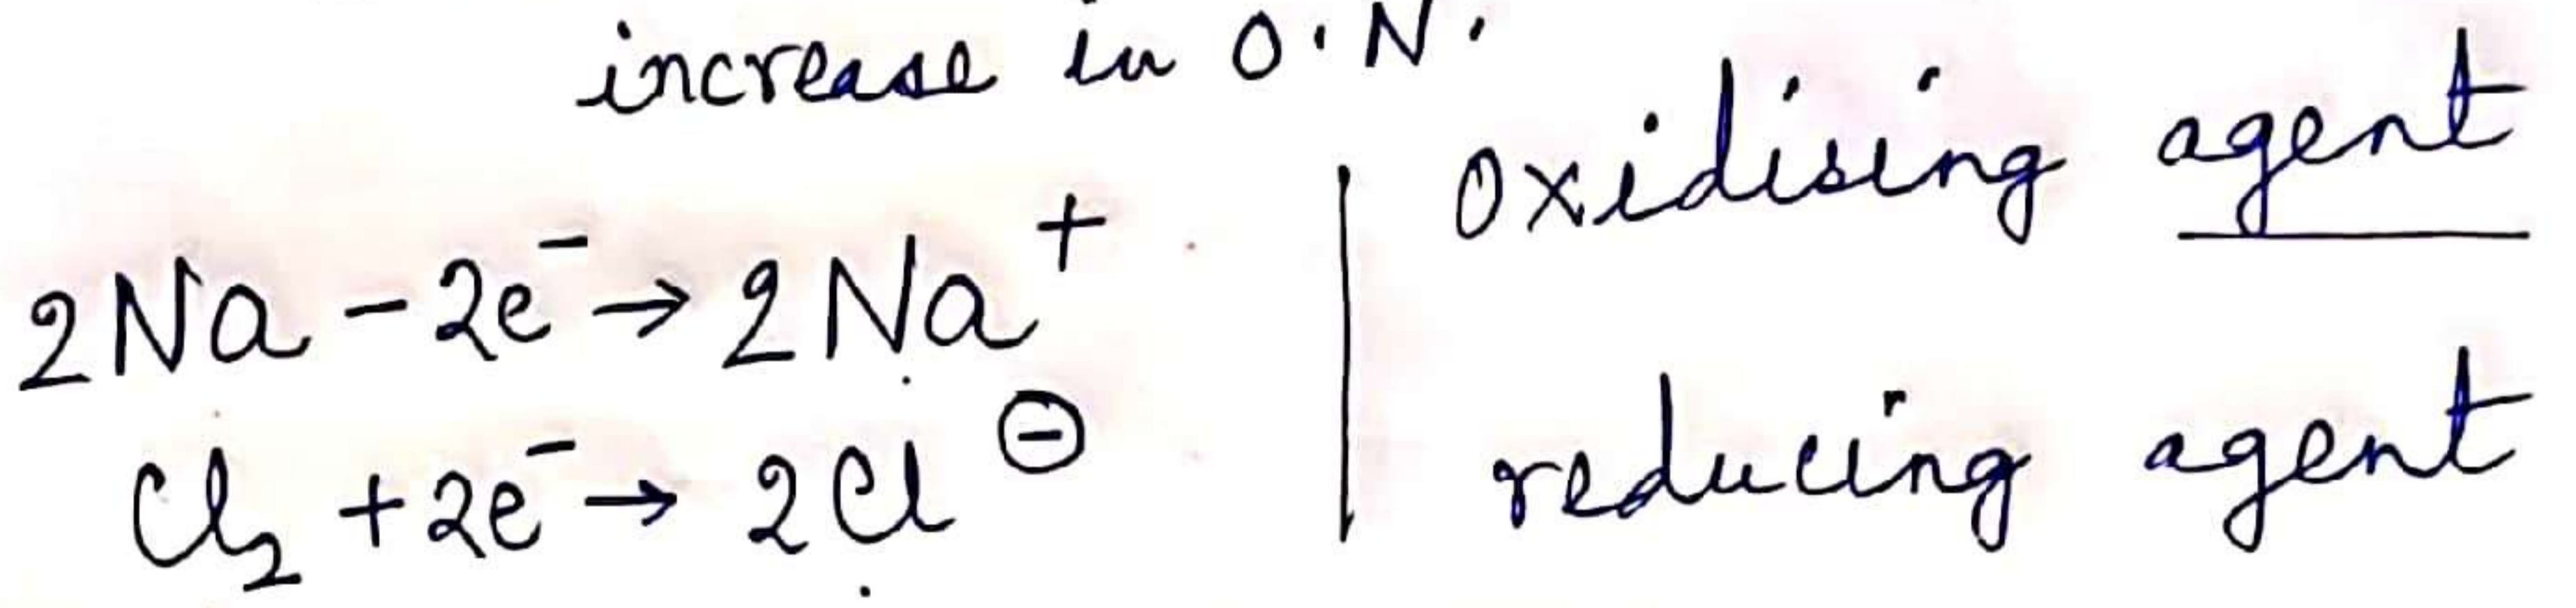 increase in O.N.
2Na - 2e⁻ → 2Na⁺
Cl₂ + 2e⁻ → 2Cl⊖
oxidising agent
reducing agent